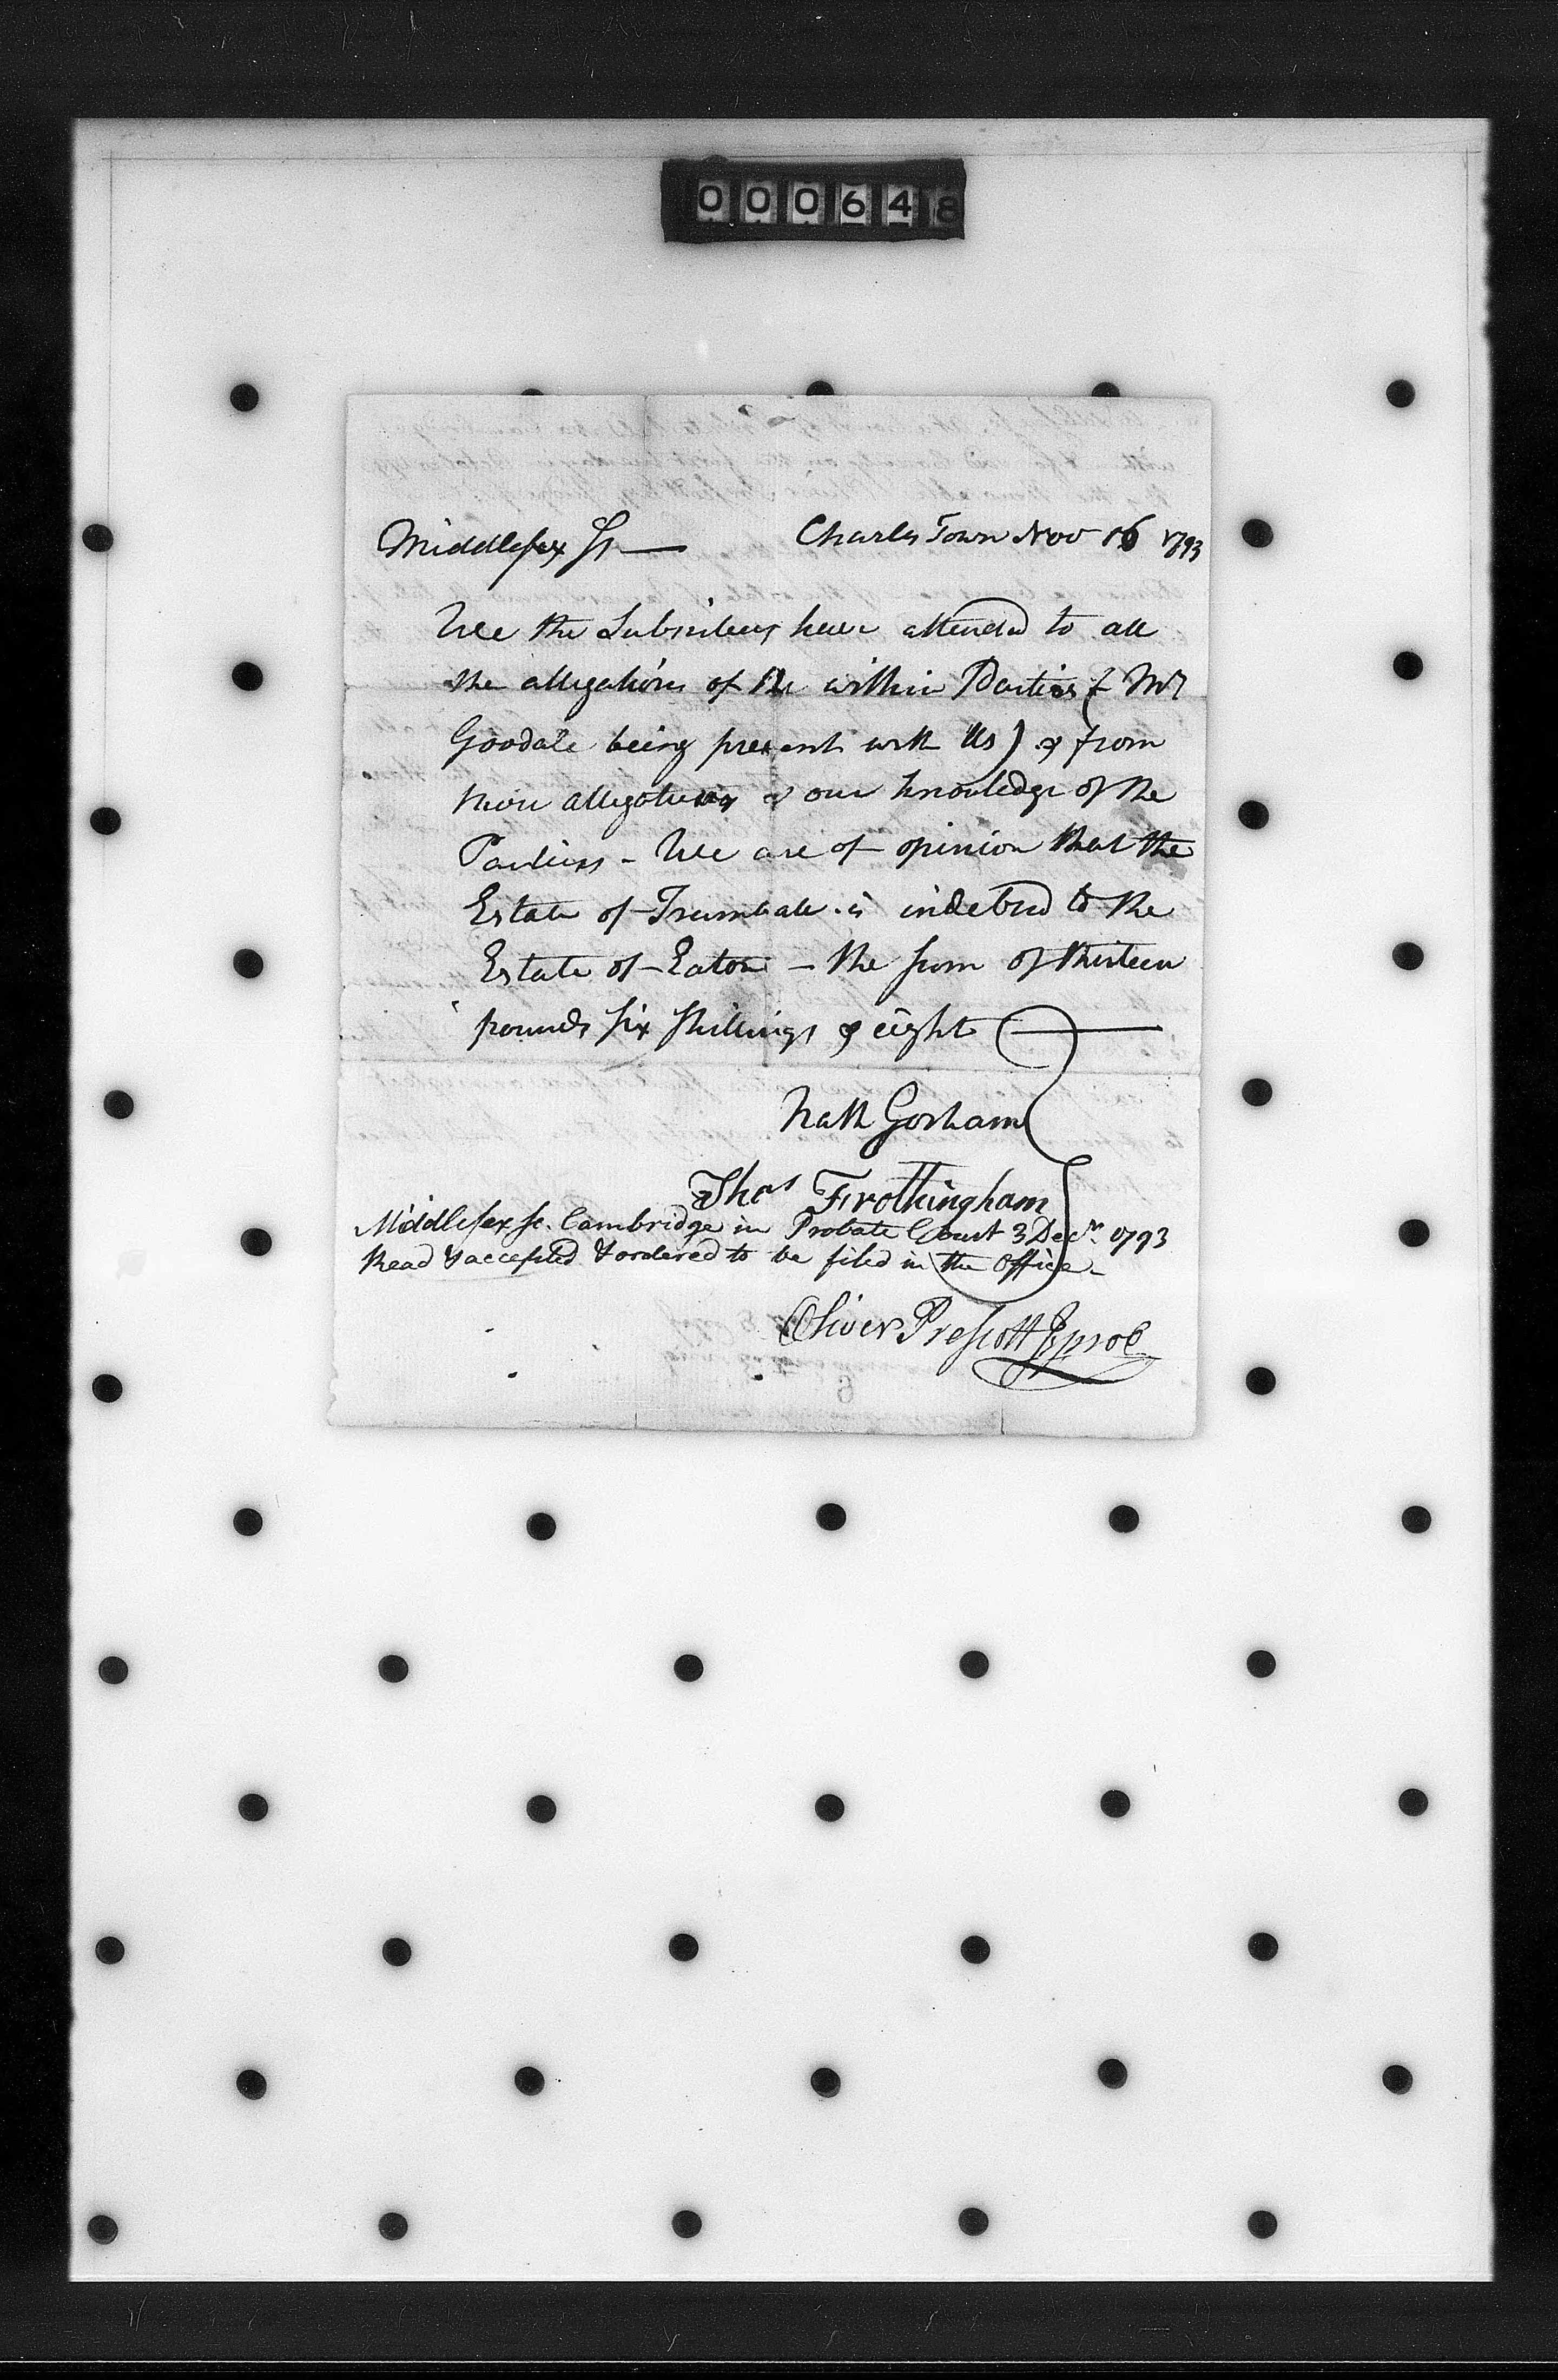 000648
Middlesex Ss — Charles Town Nov 16 1793
We the Subscribers have attended to all
the allegations of the within Parties (Mr
Goodale being present with Us) & from
their allegations & our knowledge of the
Parties - We are of opinion that the
Estate of Trumbale is indebted to the
Estate of Eaton - the sum of thirteen
pounds six shillings & eight
Nath Gorham
Thos Frothingham
Middlesex Ss. Cambridge in Probate Court 3 Decr. 1793
Read & accepted & ordered to be filed in the Office -
Oliver Prescott J prob